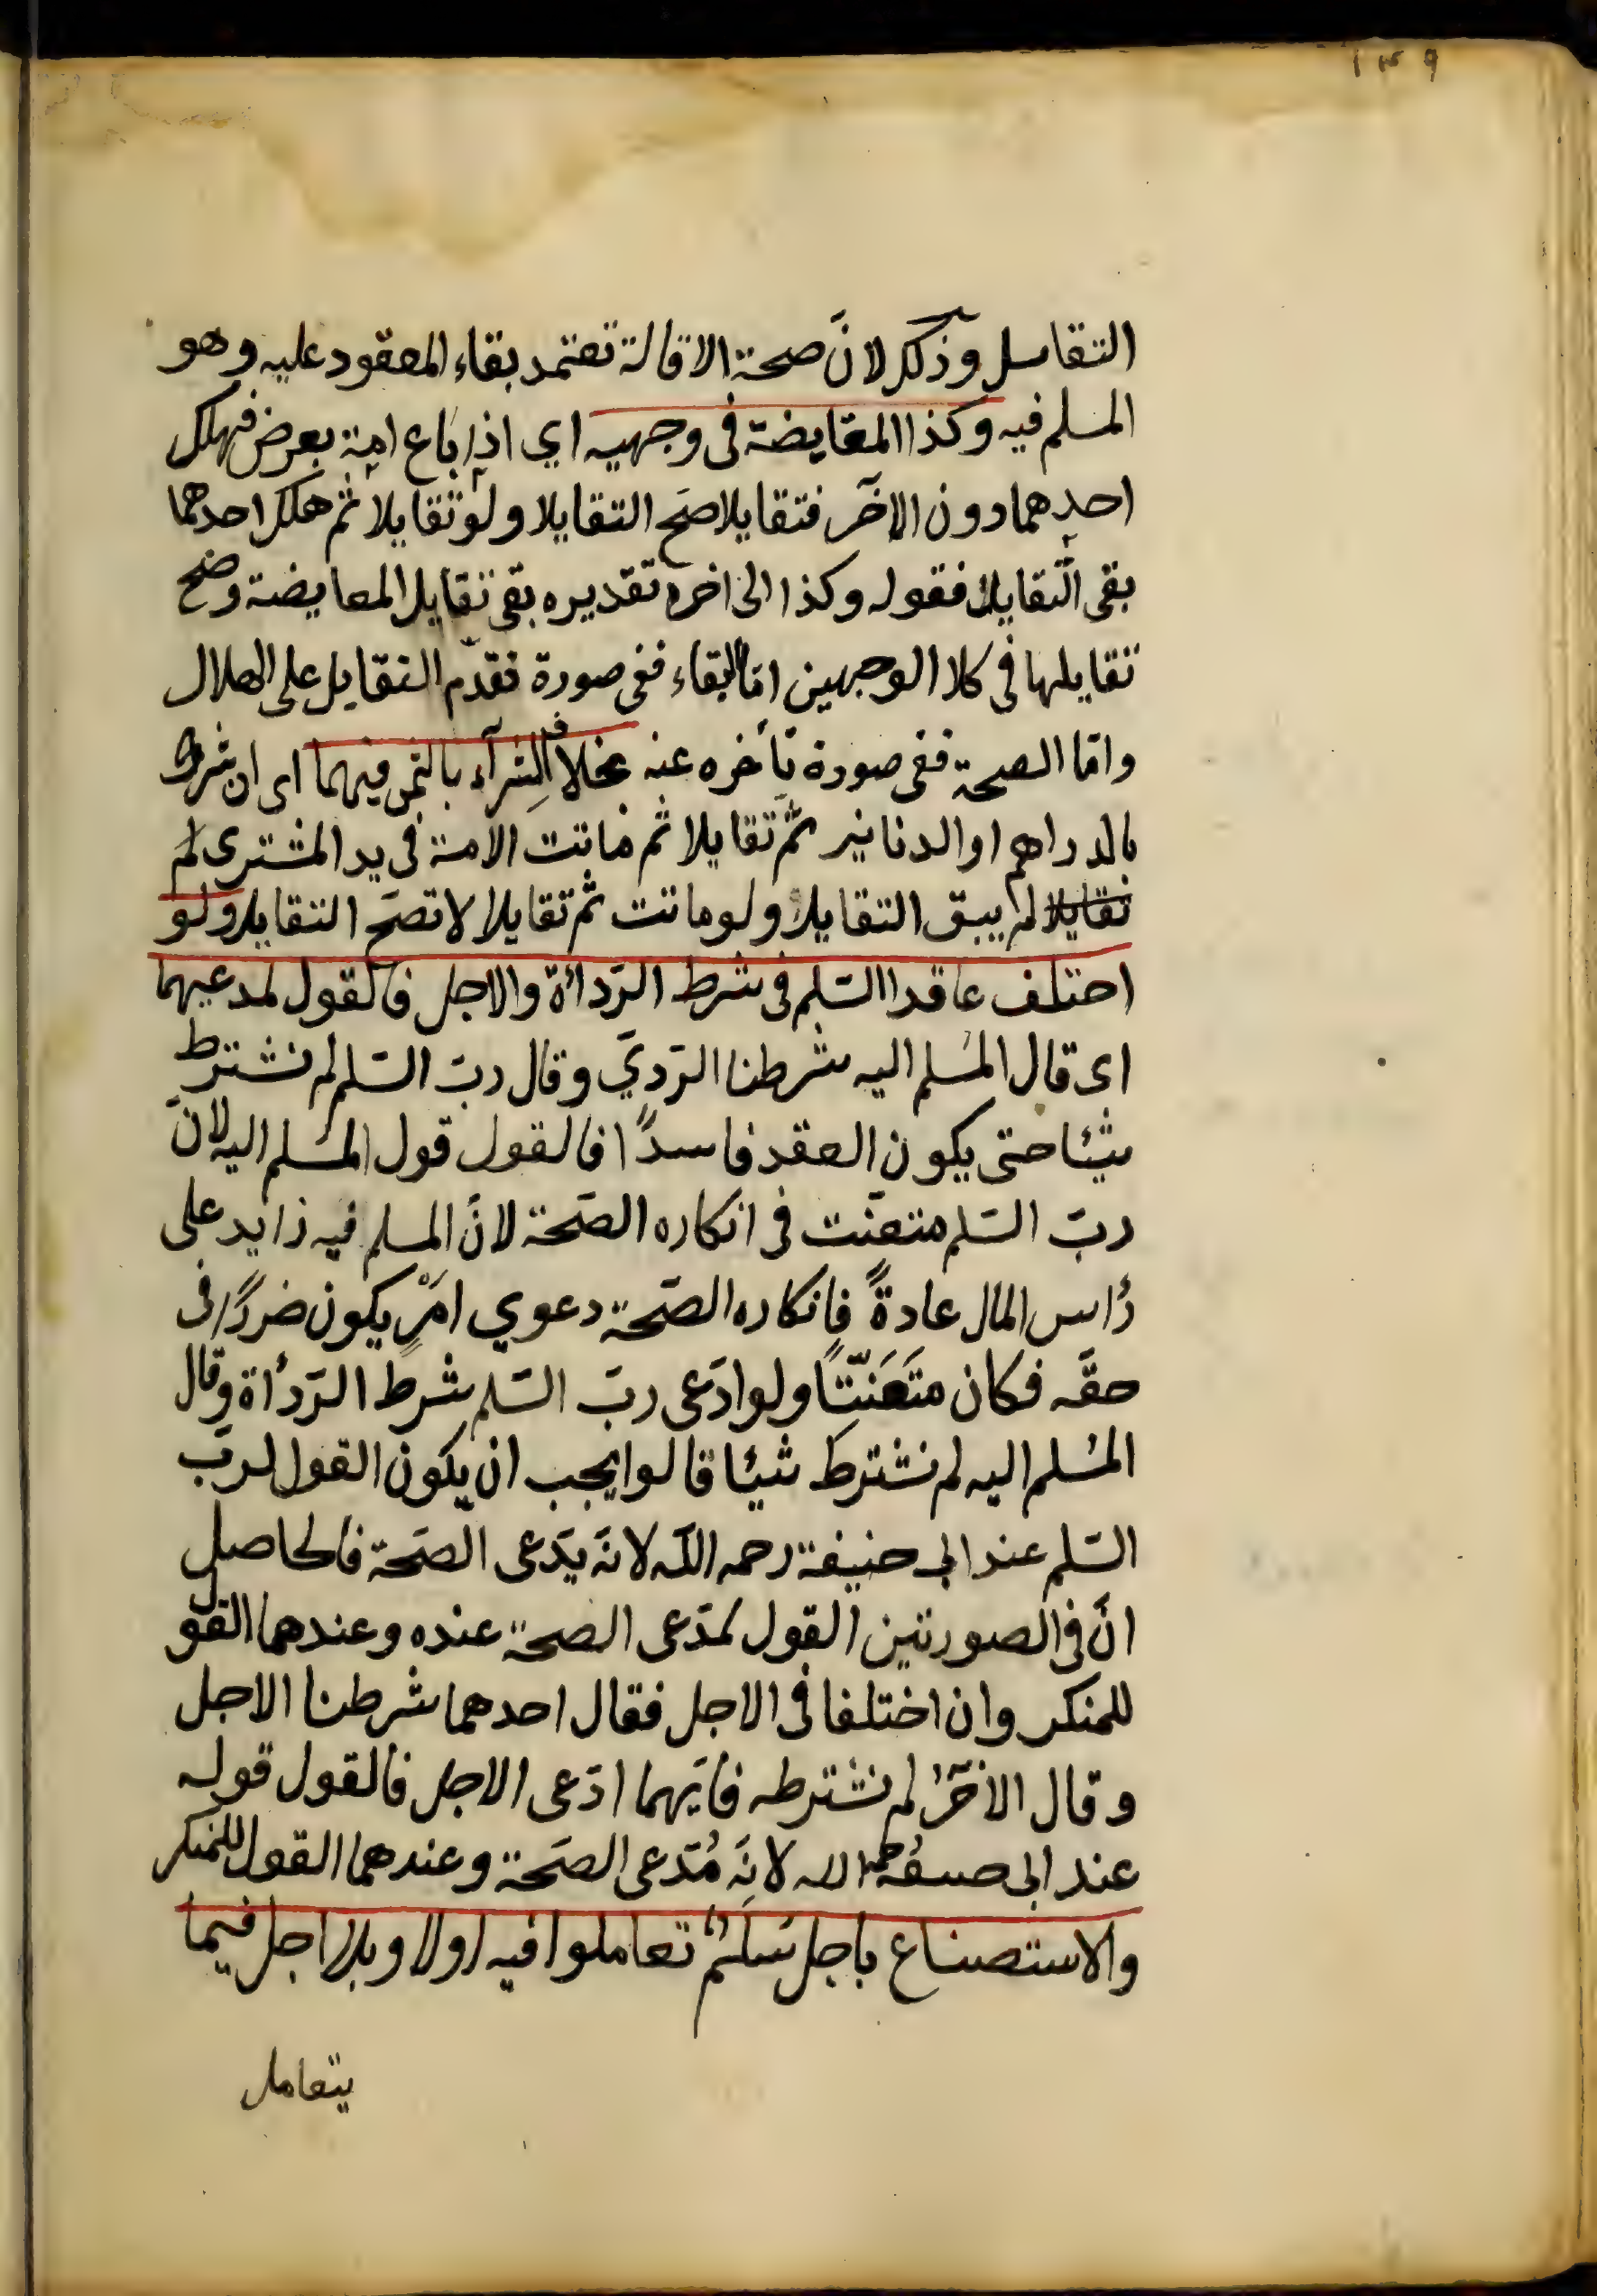 ١٣٩
التقايل وذلك لانّ صحة الاقالة تعتمد بقاء المعقود عليه وهو
المسلم فيه وكذا المقايضة فى وجهيه اي اذا باع امة بعرض فهلك
احدهما دون الاخر فتقايلا صحّ التقايلا ولو تقايلا ثم هلك احدهما
بقى التّقايلا فقوله وكذا الى اخره تقديره بقى تقايل المعايضة وصحّ
تقايلها فى كلا الوجهين امّا البقاء ففى صورة تقدّم التقايل على الهلاك
وامّا الصحة ففى صورة تأخره عنه بخلاف الشرآء بالثمن فيهما اى ان شرط
بالدراهم او الدنانير ثمّ تقايلا ثم ماتت الامة فى يد المشترى لم
تقايلا لم يبق التقايلا ولو ماتت ثم تقايلا لا تصحّ التقايلا ولو
اختلف عاقدا السّلم فى شرط الرّدأة والاجل فالقول لمدعيهما
اى قال المُسلم اليه شرطنا الرّديّ وقال ربّ السّلم لم نشترط
شيئا حتى يكون العقد فاسداً فالقول قول المُسلم اليه لانّ
ربّ السّلم متعنّت فى انكاره الصّحة لانّ المسلم فيه زايد على
رأس المال عادةً فانكاره الصّحة دعوي امرٍ يكون ضررًا فى
حقّه فكان متَعَنّتاً ولو ادّعى ربّ السّلم شرط الرّدأة وقال
المُسلم اليه لم نشترط شيئا قالوا يجب ان يكون القول لربّ
السّلم عند ابى حنيفة رحمه اللّه لانّه يدّعى الصّحة فالحاصل
انّ فى الصورتين القول لمدّعى الصحة عنده وعندهما القول
للمنكر وان اختلفا فى الاجل فقال احدهما شرطنا الاجل
وقال الاخرُ لم نشترطه فايّهما ادّعى الاجل فالقول قوله
عند ابى حنيفة رحمه الله لانّه مُدّعى الصّحة وعندهما القول للمنكر
والاستصناع باجل سَلَمٌ تعاملوا فيه اولا وبلا اجل فيما
يتعامل